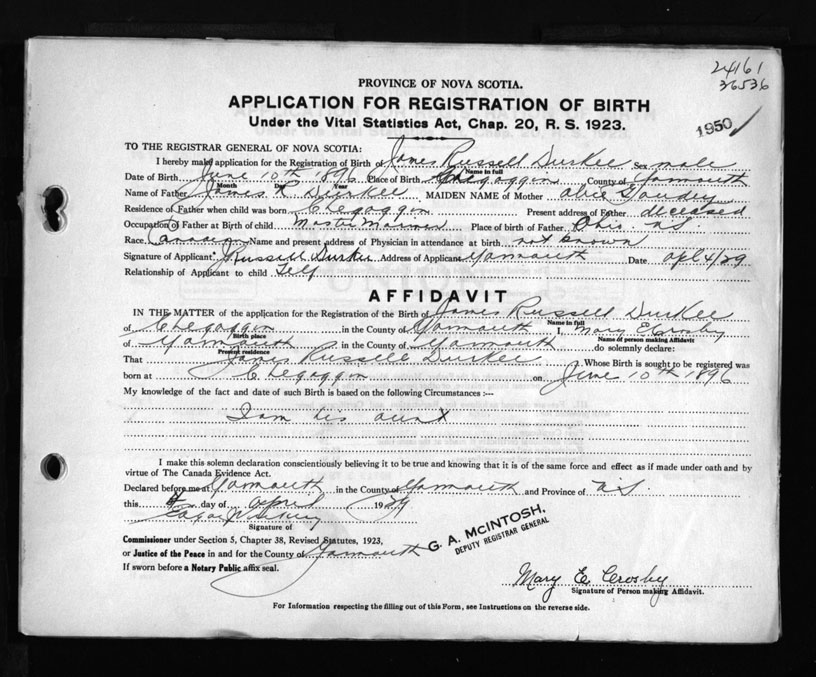 24161
36536
1950
PROVINCE OF NOVA SCOTIA.
APPLICATION FOR REGISTRATION OF BIRTH
Under the Vital Statistics Act, Chap. 20, R. S. 1923.
TO THE REGISTRAR GENERAL OF NOVA SCOTIA:
I hereby make application for the Registration of Birth of James Russell Durkee Sex male
Name in full
Date of Birth June 10th 1896 Place of Birth Chegoggin County of Yarmouth
Month Day Year
Name of Father James R Durkee MAIDEN NAME of Mother Alice Goudey
Residence of Father when child was born Chegoggin Present address of Father deceased
Occupation of Father at Birth of child Master Mariner Place of birth of Father Ohio N.S.
Race Canadian Name and present address of Physician in attendance at birth not known
Signature of Applicant J Russell Durkee Address of Applicant Yarmouth Date Apl 4/29
Relationship of Applicant to child Self
AFFIDAVIT
IN THE MATTER of the application for the Registration of the Birth of James Russell Durkee
Name in full
of Chegoggin in the County of Yarmouth I, Mary E Crosby
Birth place Name of person making Affidavit
of Yarmouth in the County of Yarmouth do solemnly declare:
Present residence
That James Russell Durkee Whose Birth is sought to be registered was
born at Chegoggin on June 10th 1896
My knowledge of the fact and date of such Birth is based on the following Circumstances :—
I am his aunt
I make this solemn declaration conscientiously believing it to be true and knowing that it is of the same force and effect as if made under oath and by
virtue of The Canada Evidence Act.
Declared before me at Yarmouth in the County of Yarmouth and Province of N.S.
this day of April 1929
Signature of
Commissioner under Section 5, Chapter 38, Revised Statutes, 1923,
or Justice of the Peace in and for the County of Yarmouth
G. A. McINTOSH,
DEPUTY REGISTRAR GENERAL
If sworn before a Notary Public affix seal.
Mary E. Crosby
Signature of Person making Affidavit.
For Information respecting the filling out of this Form, see Instructions on the reverse side.